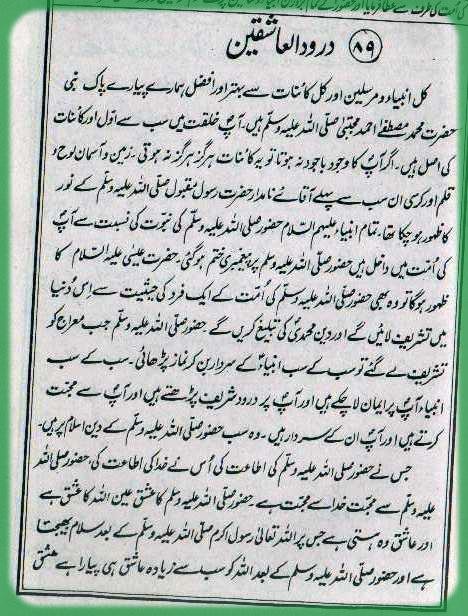 کی اُمت کی طرف سے عطا فرمایا اور حضور کے تمام
۸۹ درود العاشقین
کل انبیاء و مرسلین اور کل کائنات سے بہتر اور افضل ہمارے پیارے پاک نبی
حضرت محمد مصطفےٰ احمد مجتبیٰ صلی اللہ علیہ وسلم ہیں۔ آپؐ خلقت میں سب سے اوّل اور کائنات
کی اصل ہیں۔ اگر آپؐ کا وجود باجود نہ ہوتا تو یہ کائنات ہرگز ہرگز نہ ہوتی۔ زمین و آسمان لوح و
قلم اور کرسی ان سب سے پہلے آقائے نامدار حضرت رسول مقبول صلی اللہ علیہ وسلم کے نور
کا ظہور ہو چکا تھا۔ تمام انبیاء علیہم السلام حضور صلی اللہ علیہ وسلم کی نبوت کی نسبت سے آپؐ
کی اُمت میں داخل ہیں حضور صلی اللہ علیہ وسلم پر پیغمبری ختم ہو گئی۔ حضرت عیسیٰ علیہ السلام کا
ظہور ہو گا تو وہ بھی حضور صلی اللہ علیہ وسلم کی اُمت کے ایک فرد کی حیثیت سے اِس دُنیا
میں تشریف لائیں گے اور دین محمدیؐ کی تبلیغ کریں گے۔ حضور صلی اللہ علیہ وسلم جب معراج کو
تشریف لے گئے تو سب کے سب انبیاءؑ کے سردار بن کر نماز پڑھائی۔ سب کے سب
انبیاء آپؐ پر ایمان لا چکے ہیں اور آپؐ پر درود شریف پڑھتے ہیں اور آپؐ سے محبت
کرتے ہیں اور آپؐ ان کے سردار ہیں۔ وہ سب حضور صلی اللہ علیہ وسلم کے دین اسلام پر ہیں۔
جس نے حضور صلی اللہ علیہ وسلم کی اطاعت کی اُس نے خدا کی اطاعت کی حضور صلی اللہ
علیہ وسلم سے محبت خدا سے محبت ہے۔ حضور صلی اللہ علیہ وسلم کا عشق عین اللہ کا عشق ہے
اور عاشق وہ ہستی ہے جس پر اللہ تعالیٰ رسول اکرم صلی اللہ علیہ وسلم کے بعد سلام بھیجتا
ہے اور حضور صلی اللہ علیہ وسلم کے بعد اللہ کو سب سے زیادہ عاشق ہی پیارا ہے عشق